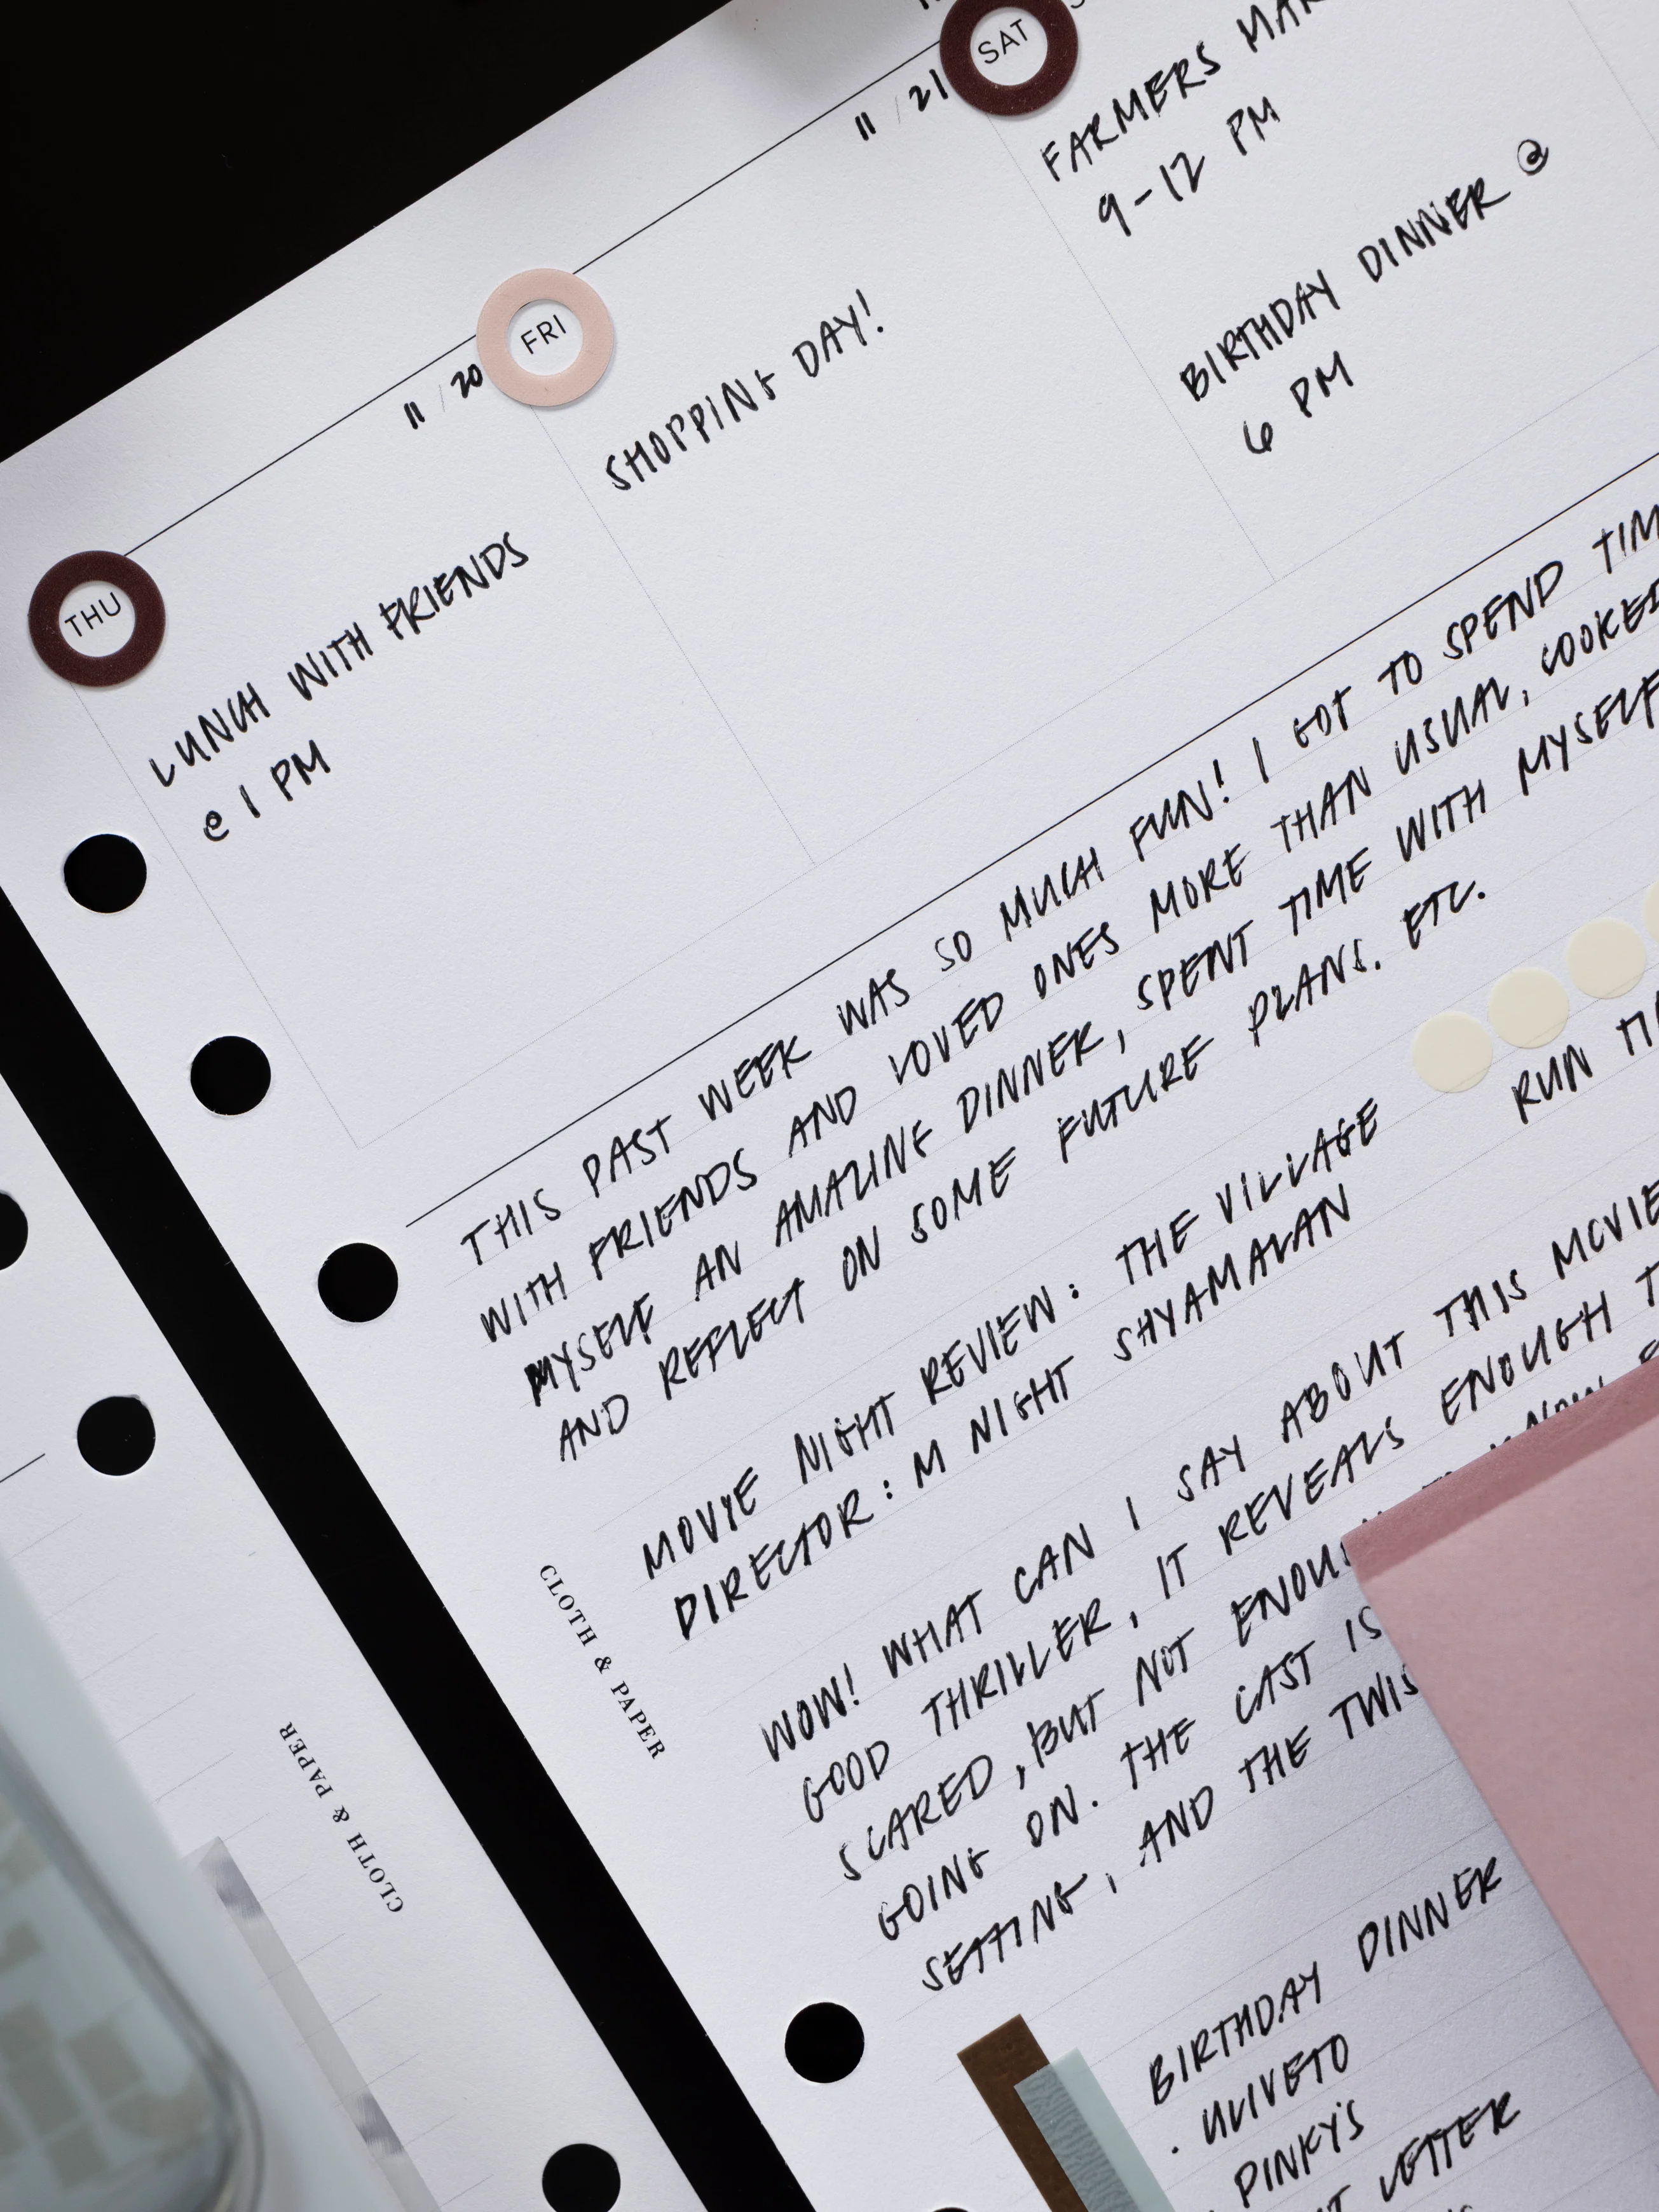 THU
LUNCH WITH FRIENDS
@ 1 PM
11/20
FRI
SHOPPING DAY!
11/21
SAT
FARMERS
9-12 PM
BIRTHDAY DINNER @
6 PM
THIS PAST WEEK WAS SO MUCH FUN! I GOT TO SPEND
WITH FRIENDS AND LOVED ONES MORE THAN USUAL, COOKED
MYSELF AN AMAZING DINNER, SPENT TIME WITH MYSELF
AND REFLECT ON SOME FUTURE PLANS. ETC.
MOVIE NIGHT REVIEW: THE VILLAGE
RUN
DIRECTOR: M NIGHT SHYAMALAN
WOW! WHAT CAN I SAY ABOUT THIS MOVIE
GOOD THRILLER, IT REVEALS ENOUGH
SCARED, BUT NOT
GOING ON. THE CAST IS
SETTING, AND THE
BIRTHDAY DINNER
. ULIVETO
PINKY'S
LETTER
CLOTH & PAPER
CLOTH & PAPER